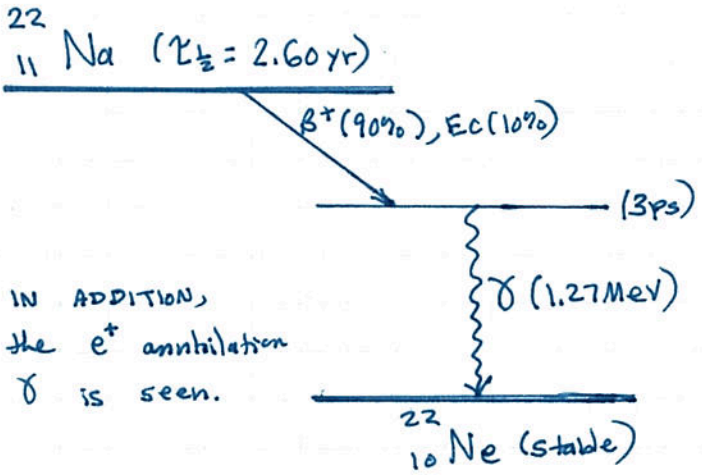 ²²₁₁Na (τ½ = 2.60 yr)
β⁺(90%), EC(10%)
(3ps)
γ (1.27 MeV)
IN ADDITION,
the e⁺ annhilation
γ is seen.
²²₁₀Ne (stable)